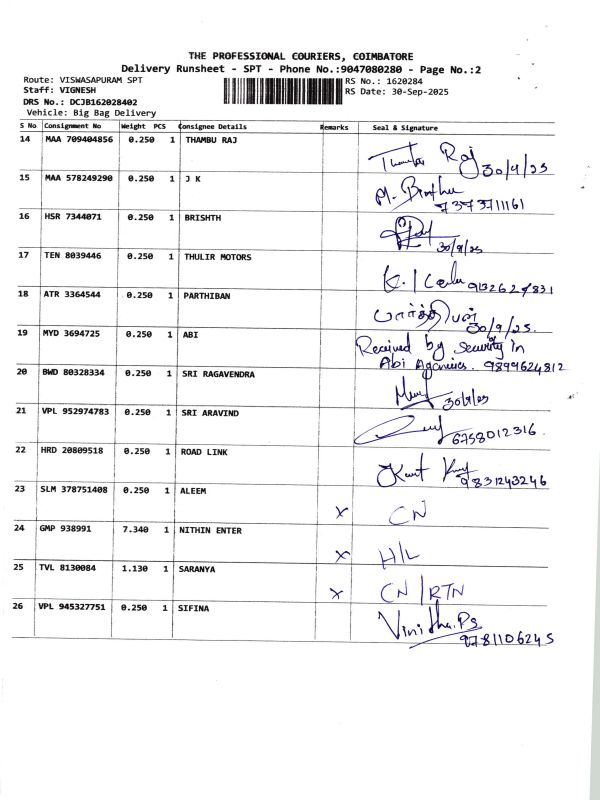 THE PROFESSIONAL COURIERS, COIMBATORE
Delivery Runsheet - SPT - Phone No.:9047080280 - Page No.:2
Route: VISWASAPURAM SPT RS No.: 1620284
Staff: VIGNESH RS Date: 30-Sep-2025
DRS No.: DCJB162028402
Vehicle: Big Bag Delivery
S No Consignment No Weight PCS Consignee Details Remarks Seal & Signature
14 MAA 709404856 0.250 1 THAMBU RAJ
Raj 30/9/25
15 MAA 578249290 0.250 1 J K
M.
7373711161
16 HSR 7344071 0.250 1 BRISHTH
30/9/25
17 TEN 8039446 0.250 1 THULIR MOTORS
18 ATR 3364544 0.250 1 PARTHIBAN
பார்த்திபன்
30/9/25.
19 MYD 3694725 0.250 1 ABI
Received by Security In
Abi Agencies. 9899624812
20 BWD 80328334 0.250 1 SRI RAGAVENDRA
30/9/25
21 VPL 952974783 0.250 1 SRI ARAVIND
6758012316
22 HRD 20809518 0.250 1 ROAD LINK
9831243246
23 SLM 378751408 0.250 1 ALEEM
x CN
24 GMP 938991 7.340 1 NITHIN ENTER
x H/L
25 TVL 8130084 1.130 1 SARANYA
x CN/RTN
26 VPL 945327751 0.250 1 SIFINA
Vinitha.Ps
9781106245